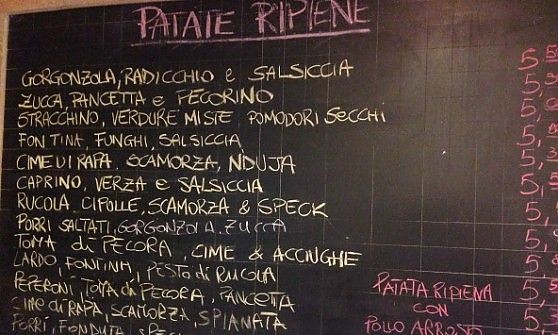 PATATE RIPIENE
GORGONZOLA, RADICCHIO e SALSICCIA
ZUCCA, PANCETTA e PECORINO
STRACCHINO, VERDURE MISTE, POMODORI SECCHI
FONTINA, FUNGHI, SALSICCIA
CIME DI RAPA, SCAMORZA, NDUJA
CAPRINO, VERZA e SALSICCIA
RUCOLA, CIPOLLE, SCAMORZA & SPECK
PORRI SALTATI, GORGONZOLA, ZUCCA
TOMA di PECORA, CIME & ACCINGHE
LARDO, FONTINA, PESTO di RUCOLA
PEPERONI, TOMA di PECORA, PANCETTA
CIME di RAPA, SCAMORZA, SPIANATA
PORRI, FONDUTA, SPECK
PATATA RIPIENA
CON
POLLO ARROSTO